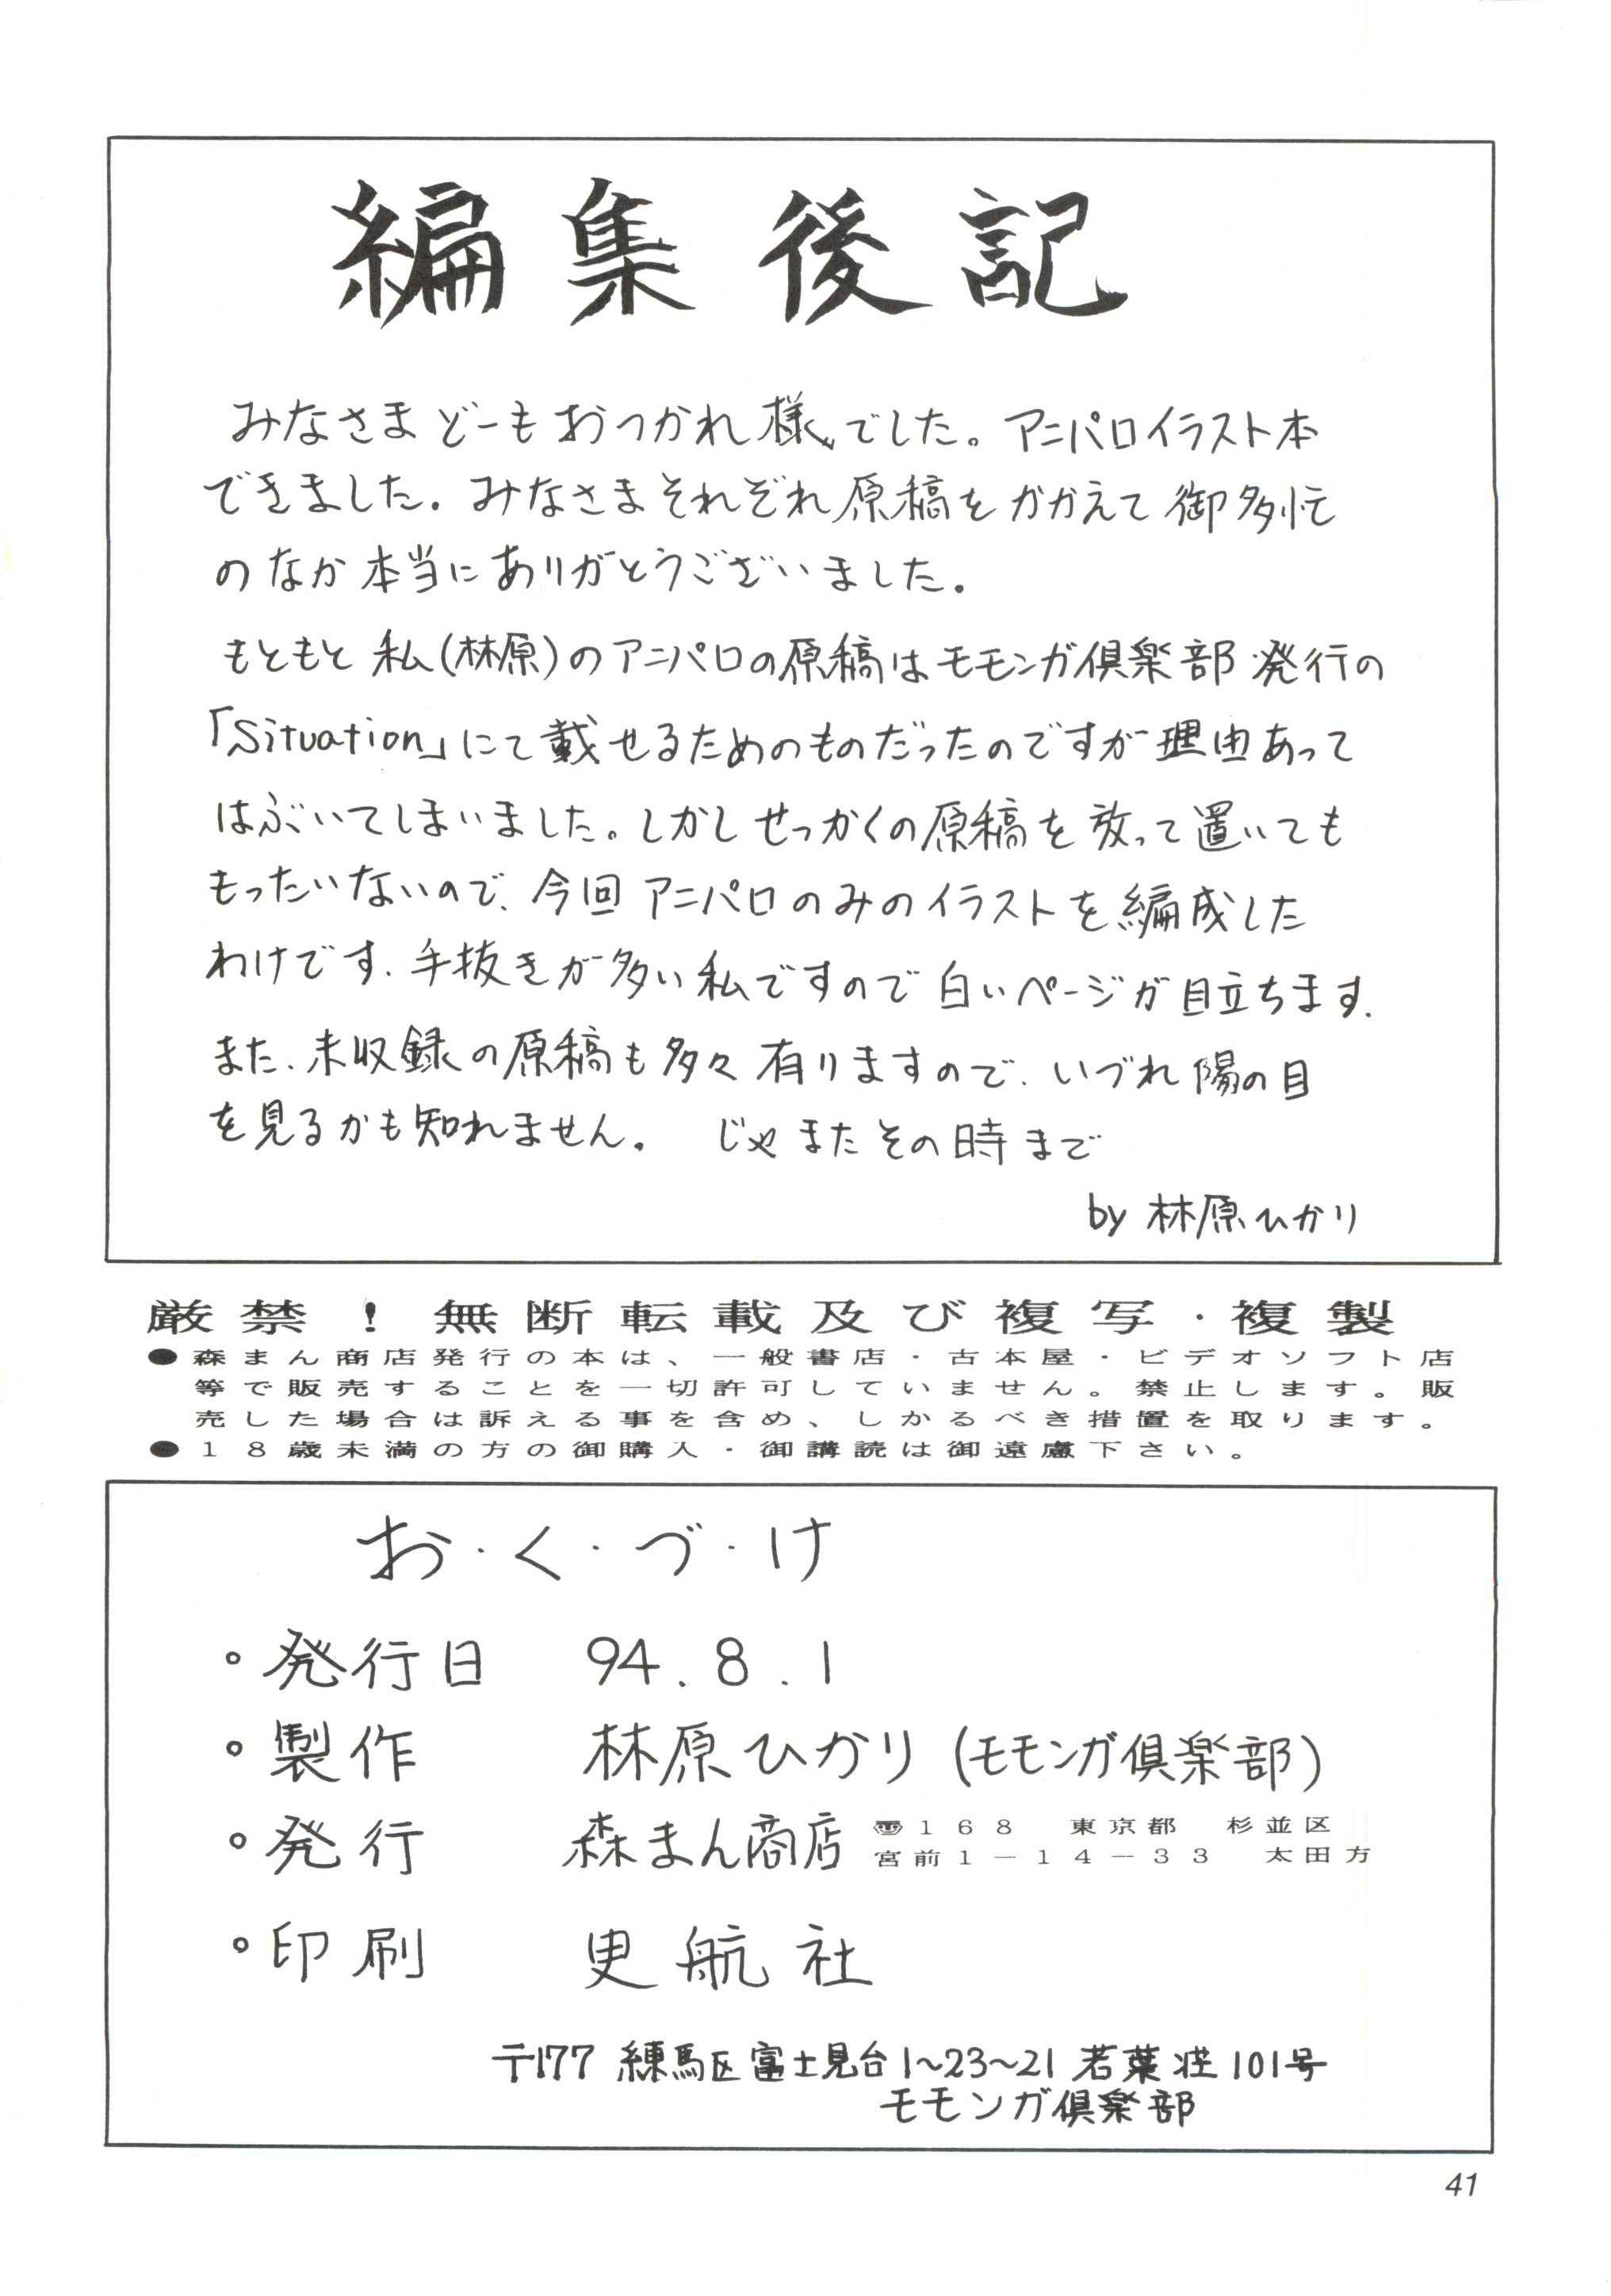 編集後記
みなさまどーもおつかれ様でした。アニパロイラスト本
できました。みなさまそれぞれ原稿をかかえて御多忙
のなか本当にありがとうございました。
もともと私(林原)のアニパロの原稿はモモンガ倶楽部発行の
「Situation」にて載せるためのものだったのですが理由あって
はぶいてしまいました。しかしせっかくの原稿を放って置いても
もったいないので、今回アニパロのみのイラストを編成した
わけです。手抜きが多い私ですので白いページが目立ちます。
また、未収録の原稿も多々有りますので、いづれ陽の目
を見るかも知れません。 じゃまたその時まで
by 林原ひかり
厳禁!無断転載及び複写・複製
●森まん商店発行の本は、一般書店・古本屋・ビデオソフト店
等で販売することを一切許可していません。禁止します。販
売した場合は訴える事を含め、しかるべき措置を取ります。
●18歳未満の方の御購入・御講読は御遠慮下さい。
お・く・づ・け
・発行日 94.8.1
・製作 林原ひかり(モモンガ倶楽部)
・発行 森まん商店 〠168 東京都 杉並区
宮前1-14-33 太田方
・印刷 曳航社
〒177 練馬区富士見台1〜23〜21 若葉荘101号
モモンガ倶楽部
41